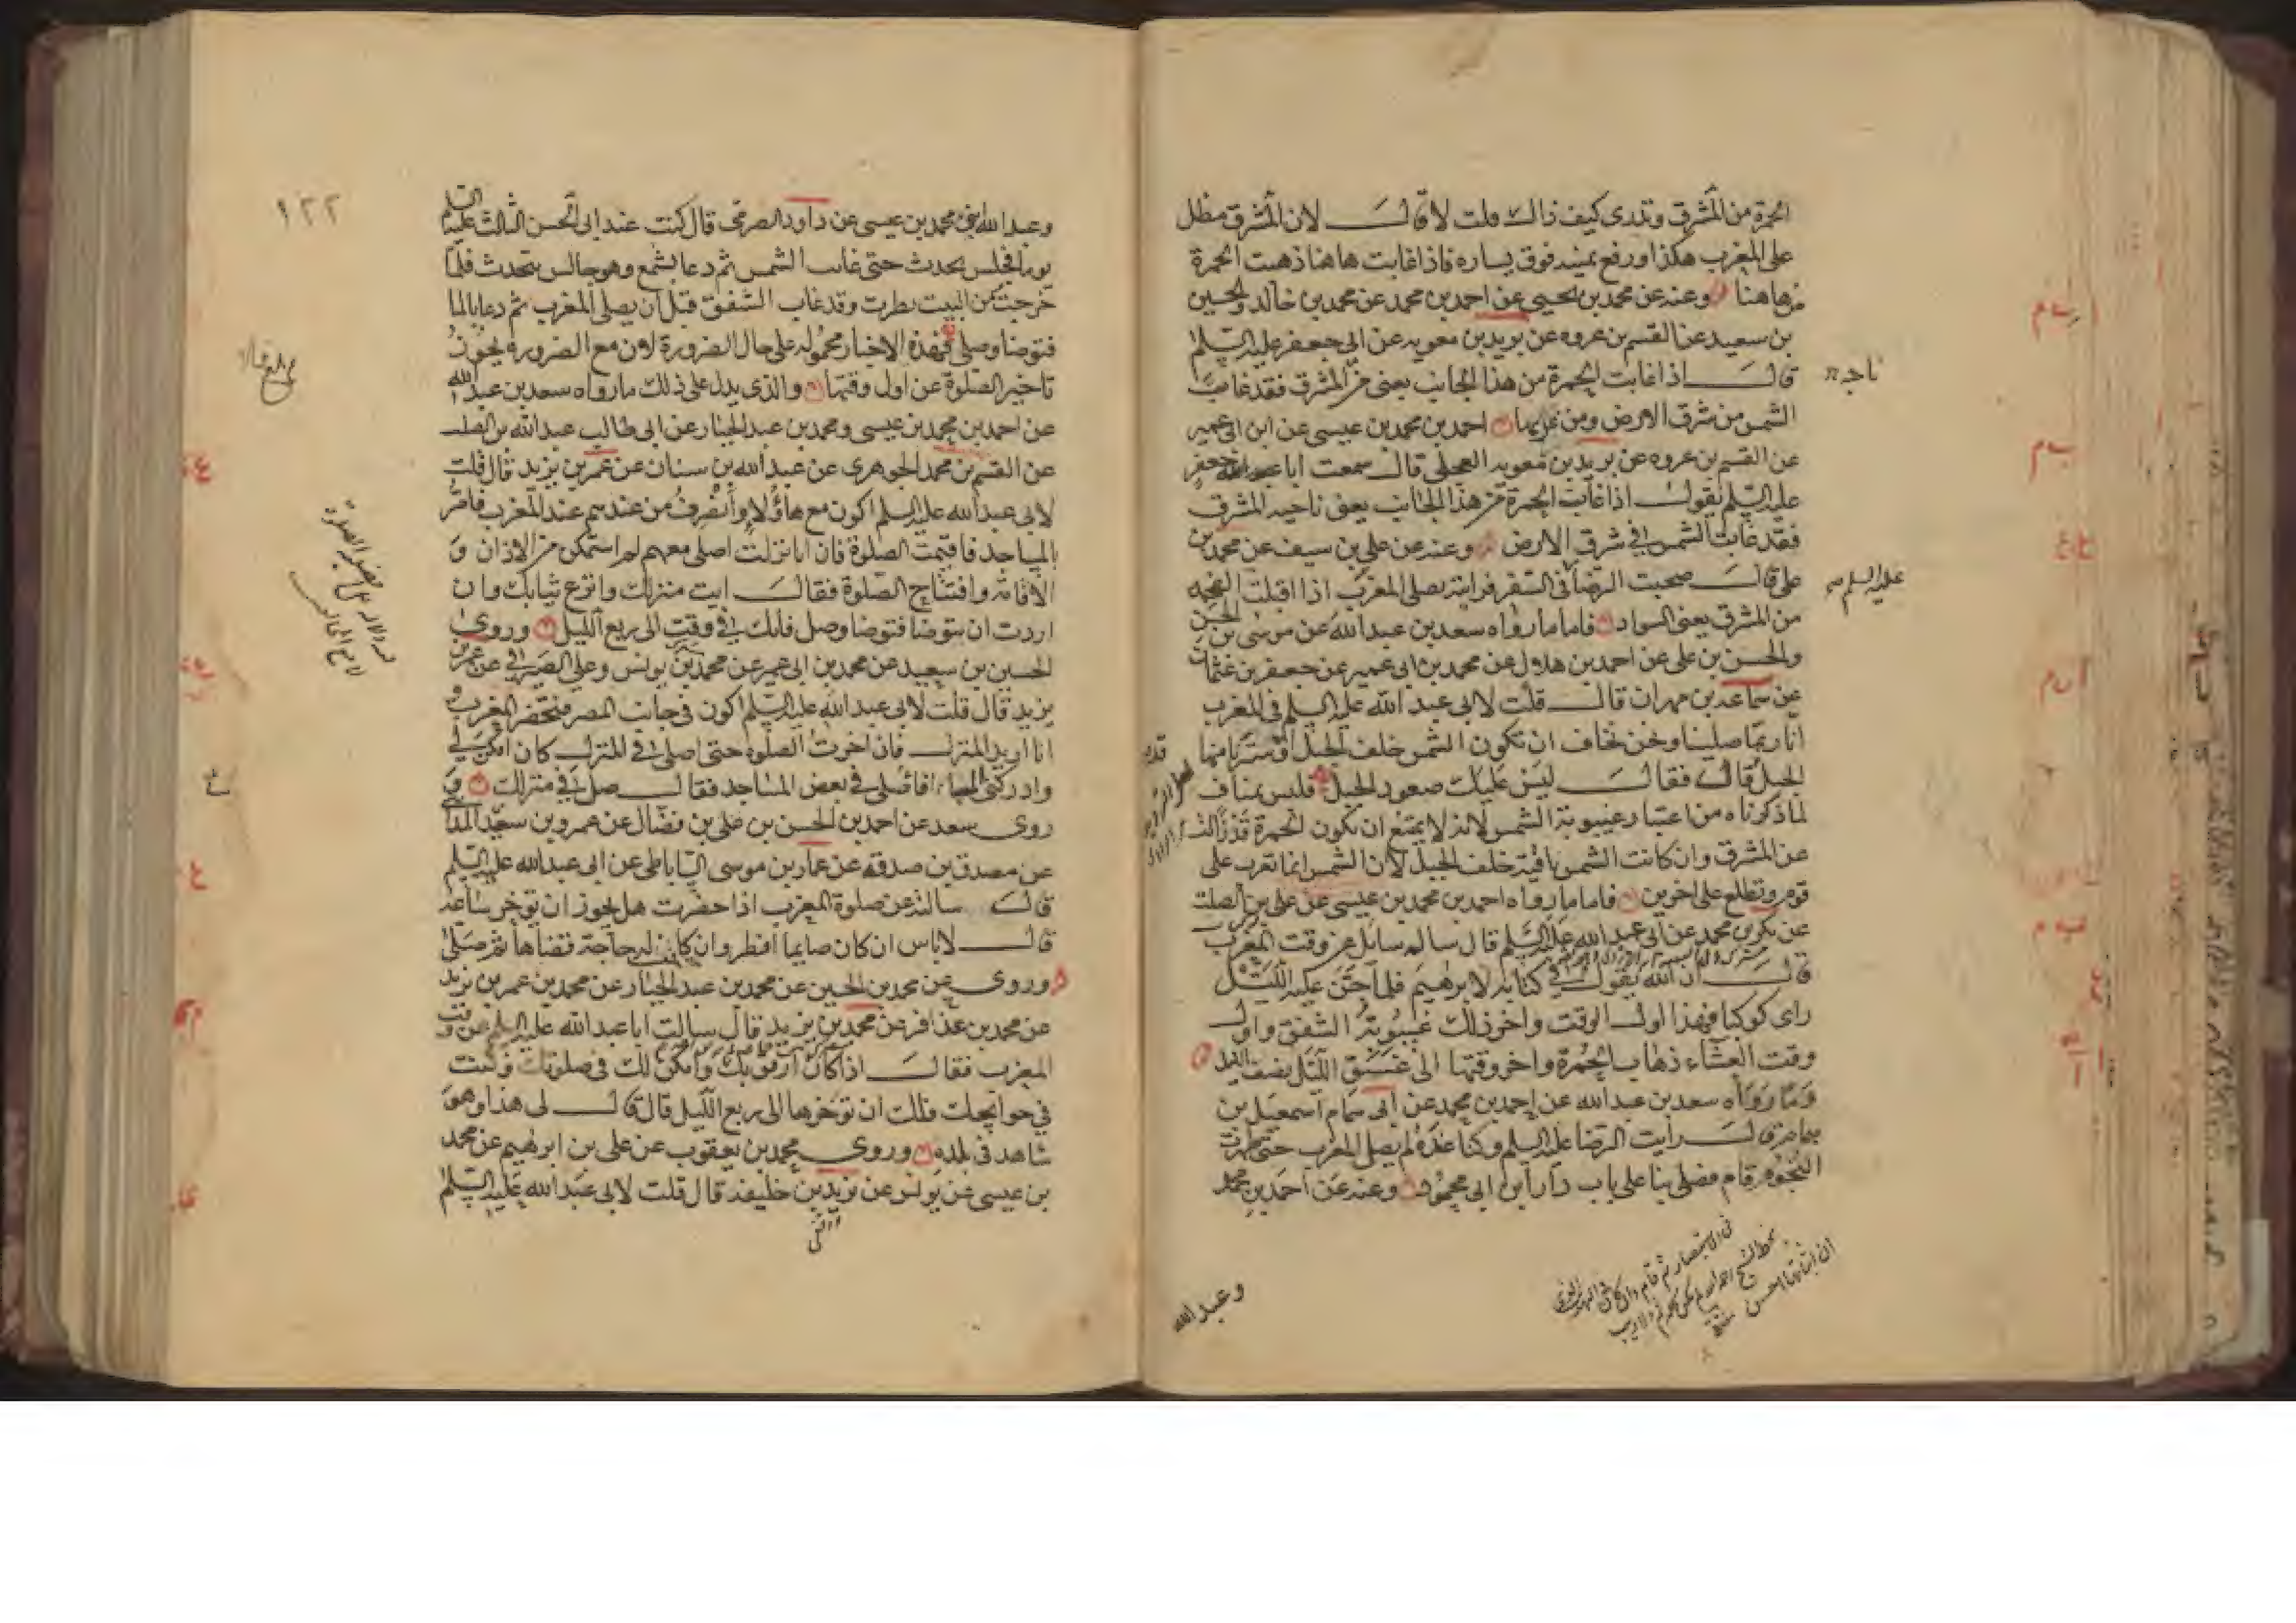 الحمرة من المشرق وتدرى كيف ذاك قلت لا قال لان المشرق مطل
على المغرب هكذا ورفع يمينه فوق يساره فاذا غابت هاهنا ذهبت الحمرة
من هاهنا وعنه عن محمد بن يحيى عن احمد بن محمد عن محمد بن خالد والحسين
بن سعيد عن القسم بن عروه عن بريد بن معويه عن ابى جعفر عليه السلم
قال اذا غابت الحمرة من هذا الجانب يعنى من المشرق فقد غابت
ناحية
الشمس من شرق الارض ومن غربها احمد بن محمد بن عيسى عن ابن ابى عمير
عن القسم بن عروه عن بريد بن معويه العجلى قال سمعت ابا جعفر
عليه السلم يقول اذا غابت الحمرة من هذا الجانب يعنى ناحيه المشرق
فقد غابت الشمس فى شرق الارض وعنه عن على بن سيف عن محمد بن
على قال صحبت الرضا فى السفر فرايته يصلى المغرب اذا اقبلت الفحمه
عليه السلم
من المشرق يعنى السواد فاما ما رواه سعد بن عبد الله عن موسى بن الحسن
والحسن بن على عن احمد بن هلال عن محمد بن ابى عمير عن جعفر بن عثمان
عن سماعه بن مهران قال قلت لابى عبد الله عليه السلم فى المغرب
انا ربما صلينا ونحن نخاف ان تكون الشمس خلف الجبل او سترنا منها
الجبل قال فقال ليس عليك صعود الجبل فليس بمناف
لما ذكرناه من اعتبار غيبوبة الشمس لانه لا يمتنع ان تكون الحمرة قد زالت
عن المشرق وان كانت الشمس باقية خلف الجبل لان الشمس انما تغرب على
قوم وتطلع على اخرين فاما ما رواه احمد بن محمد بن عيسى عن على بن الصلت
عن بكر بن محمد عن ابى عبد الله عليه السلم قال ساله سائل عن وقت المغرب
قال ان الله يقول فى كتابه لابرهيم فلما جن عليه الليل
راى كوكبا فهذا اول الوقت واخر ذلك غيبوبة الشفق واول
وقت العشاء ذهاب الحمرة واخر وقتها الى غسق الليل نصف الليل
وما رواه سعد بن عبد الله عن احمد بن محمد عن ابى همام اسمعيل بن
همام قال رايت الرضا عليه السلم وكنا عنده لم يصل المغرب حتى ظهرت
النجوم قام فصلى بنا على باب دار ابن ابى محمود وعنه عن احمد بن محمد
وعبد الله
١٢٢
وعبد الله بن محمد بن عيسى عن داود الصرمى قال كنت عند ابى الحسن الثالث عليه السلم
يوما فجلس يحدث حتى غابت الشمس ثم دعا بشمع وهو جالس يتحدث فلما
خرجت من البيت نظرت وقد غاب الشفق قبل ان يصلى المغرب ثم دعا بالما
فتوضا وصلى فهذه الاخبار محموله على حال الضرورة لان مع الضروره يجوز
تاخير الصلوة عن اول وقتها والذى يدل على ذلك ما رواه سعد بن عبد الله
عن احمد بن محمد بن عيسى ومحمد بن عبد الجبار عن ابى طالب عبد الله بن الصلت
عن القسم بن محمد الجوهرى عن عبد الله بن سنان عن عمر بن يزيد قال قلت
لابى عبد الله عليه السلم اكون مع هاؤلاء وانصرف من عندهم عند المغرب فامر
بالمساجد فاقيمت الصلوة فان انا نزلت اصلى معهم لم استمكن من الاذان و
الاقامة وافتتاح الصلوة فقال ايت منزلك وانزع ثيابك وان
اردت ان تتوضا فتوضا وصل فانك فى وقت الى ربع الليل وروى
الحسين بن سعيد عن محمد بن ابى عمير عن محمد بن يونس وعلى الصيرفى عن عمر بن
يزيد قال قلت لابى عبد الله عليه السلم اكون فى جانب المصر فتحضر المغرب و
انا اريد المنزل فان اخرت الصلوة حتى اصلى فى المنزل كان امكن لى
وادركنى المساء افاصلى فى بعض المساجد فقال صل فى منزلك و
روى سعد عن احمد بن الحسن بن على بن فضال عن عمرو بن سعيد المداينى
عن مصدق بن صدقه عن عمار بن موسى الساباطى عن ابى عبد الله عليه السلم
قال سالته عن صلوة المغرب اذا حضرت هل يجوز ان تؤخر ساعة
قال لا باس ان كان صايما افطر وان كانت له حاجة قضاها ثم صلى
وروى عن محمد بن الحسين عن محمد بن عبد الجبار عن محمد بن عمر بن يزيد
عن محمد بن عذافر عن محمد بن يزيد قال سالت ابا عبد الله عليه السلم عن وقت
المغرب فقال اذا كان ارفق بك وامكن لك فى صلوتك وكنت
فى حوائجك فلك ان تؤخرها الى ربع الليل قال قال لى هذا وهو
شاهد فى بلده وروى محمد بن يعقوب عن على بن ابرهيم عن محمد
بن عيسى عن يونس عن يزيد بن خليفه قال قلت لابى عبد الله عليه السلم